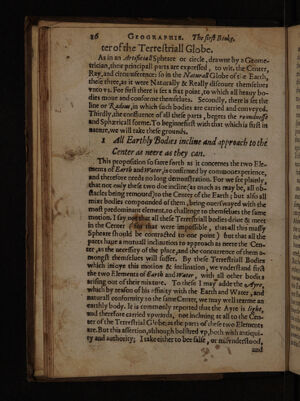 16 GEOGRAPHIE. The first Booke.
ter of the Terrestriall Globe.
As in an Artificiall Spheare or circle, drawne by a Geome-
trician, three principall parts are expressed, to wit, the Center,
Ray, and circumference: so in the Naturall Globe of the Earth,
these three, as it were Naturally & Really discouer themselues
vnto vs. For first there is set a fixt point, to which all heauy bo-
dies moue and conforme themselues. Secondly, there is set the
line or Radius, in which such bodies are carried and conveyed.
Thirdly, the confluence of all these parts, begets the roundnesse
and Sphæricall forme. To begin first with that which is first in
nature, we will take these grounds.
1 All Earthly Bodies incline and approach to the
Center as neere as they can.
This proposition so farre forth as it concernes the two Ele-
ments of Earth and Water, is confirmed by common experience,
and therefore needs no long demonstration. For we see plainly,
that not only these two doe incline (as much as may be, all ob-
stacles being remoued) to the Center of the Earth; but also all
mixt bodies compounded of them, being overswayed with the
most predominant element, to challenge to themselues the same
motion. I say not that all these Terrestriall bodies driue & meet
in the Center (for that were impossible, that all this massy
Spheare should be contracted to one point) but that all the
parts haue a mutuall inclination to approach as neere the Cen-
ter, as the necessity of the place, and the concurrence of them a-
mongst themselues will suffer. By these Terrestriall Bodies
which inioye this motion & inclination, we vnderstand first
the two Elements of Earth and Water, with all other bodies
arising out of their mixture. To these I may adde the Ayre,
which by reason of his affinity with the Earth and Water, and
naturall conformity to the same Center, we may well tearme an
earthly body. It is commonly reported that the Ayre is light,
and therefore carried vpwards, not inclining at all to the Cen-
ter of the Terrestriall Globe, as the parts of these two Elements
are. But this assertion, although bolstred vp, both with antiqui-
ty and authority; I take either to bee false, or misvnderstood,
and